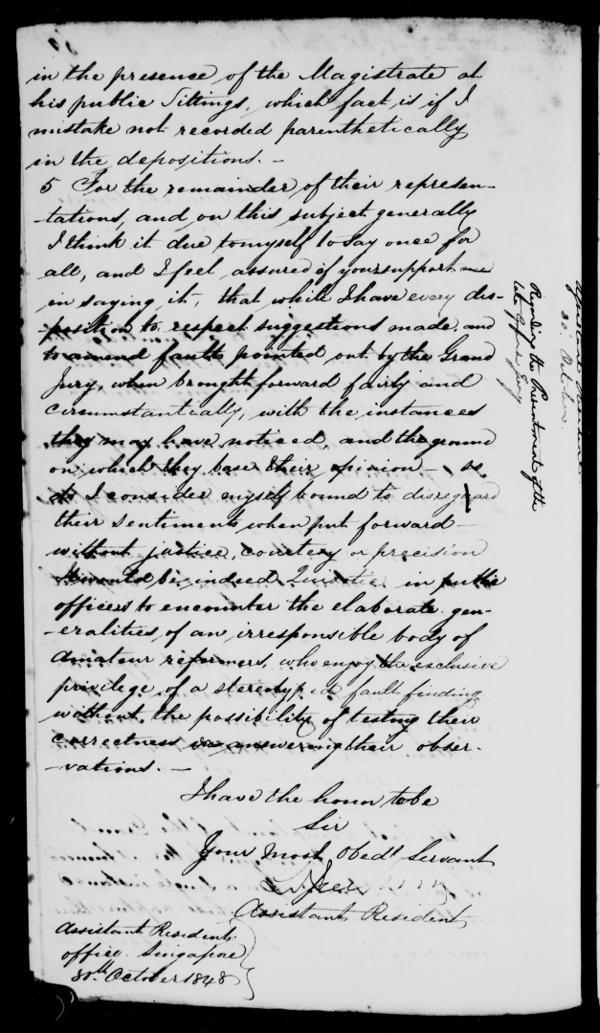 in the presence of the Magistrate at
his public Sittings, which fact is if I
mistake not recorded parenthetically
in the depositions. —
5 For the remainder of their represen-
-tations, and, on this subject generally
I think it due to myself to say once for
all, and I feel assured of your support
in saying it, that while I have every dis-
-position to respect suggestions made, and
to amend faults pointed out by the Grand
Jury, when brought forward fairly and
circumstantially, with the instances
they may have noticed, and the ground
on which they base their opinion — so
do I consider myself bound to disregard
their sentiments, when put forward
without justice, courtesy or precision
It would be indeed Quixotic in public
officers to encounter the elaborate gen-
-eralities, of an irresponsible body of
amateur reformers, who enjoy the exclusive
privilege of a stereotyped fault finding
without the possibility of testing their
correctness or answering their obser-
-vations. —
I have the honor to be
Sir
Your Most Obedt Servant
Assistant Resident
Assistant Residents
office Singapore
30th October 1848
Assistant Resident
30th October
Regarding the Presentment of the
late Grand Jury